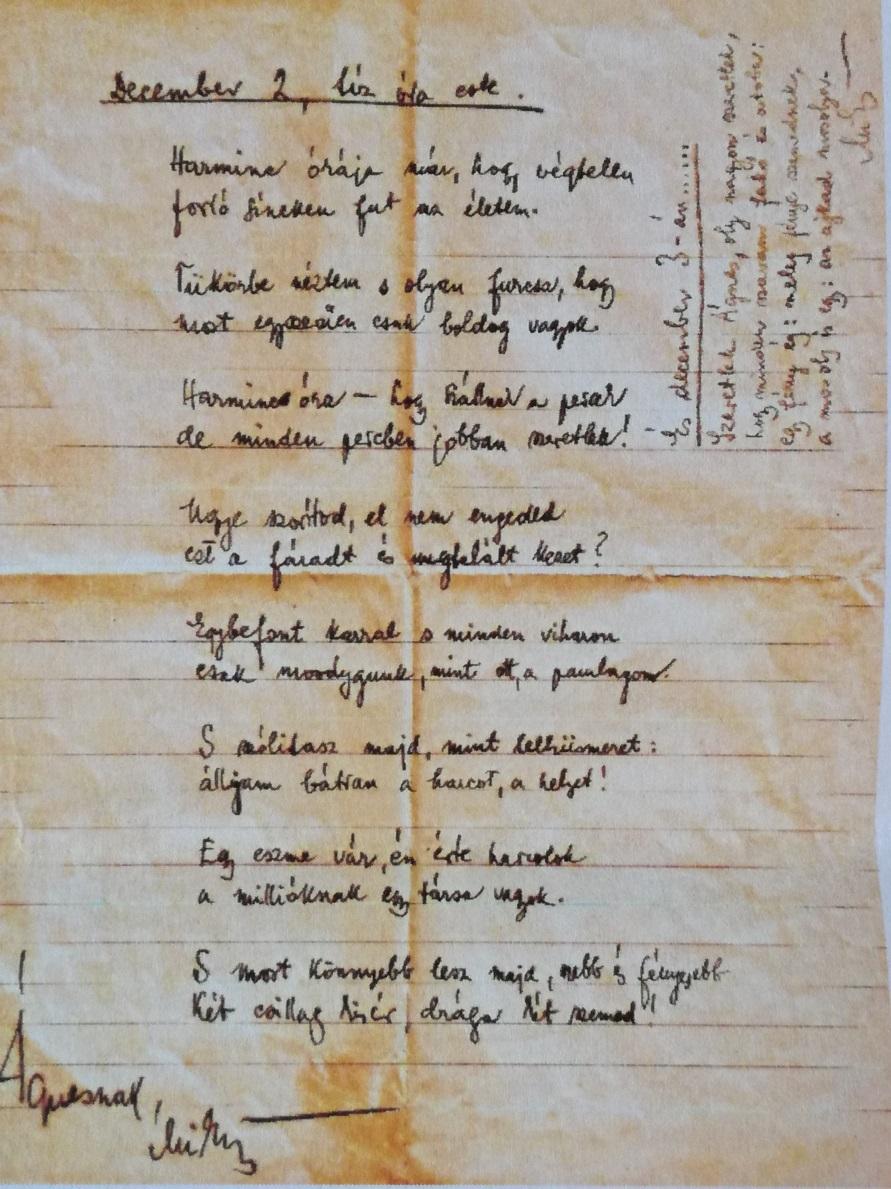 December 2, tíz óra esk.
Harminc órája már, hogy végtelen
forró síneken fut az életem.
Tükörbe néztem s olyan furcsa, hogy
most egyszerűen csak boldog vagyok.
Harminc óra — hogy szállnak a percek
de minden percben jobban szeretlek!
Ugye szorítod, el nem engeded
ezt a fáradt és megtalált kezet?
Egybefont karral s minden viharon
csak mosolygunk, mint ott, a pamlagon.
S szólítasz majd, mint lelkiismeret:
álljam bátran a harcot, a helyet!
Egy eszme vár, én érte harcolok
a millióknak egy társa vagyok.
S most könnyebb lesz majd, szebb és fényesebb
Két csillag kísér, drága két szemed!
Ágnesnak,
És december 3-án......
Szeretlek Ágnes, oly nagyon szeretlek,
hogy minden szavam fakó és ostoba:
egy fény ég: meleg fénye szemednek,
a mosoly is egy: az ajkad mosolya.